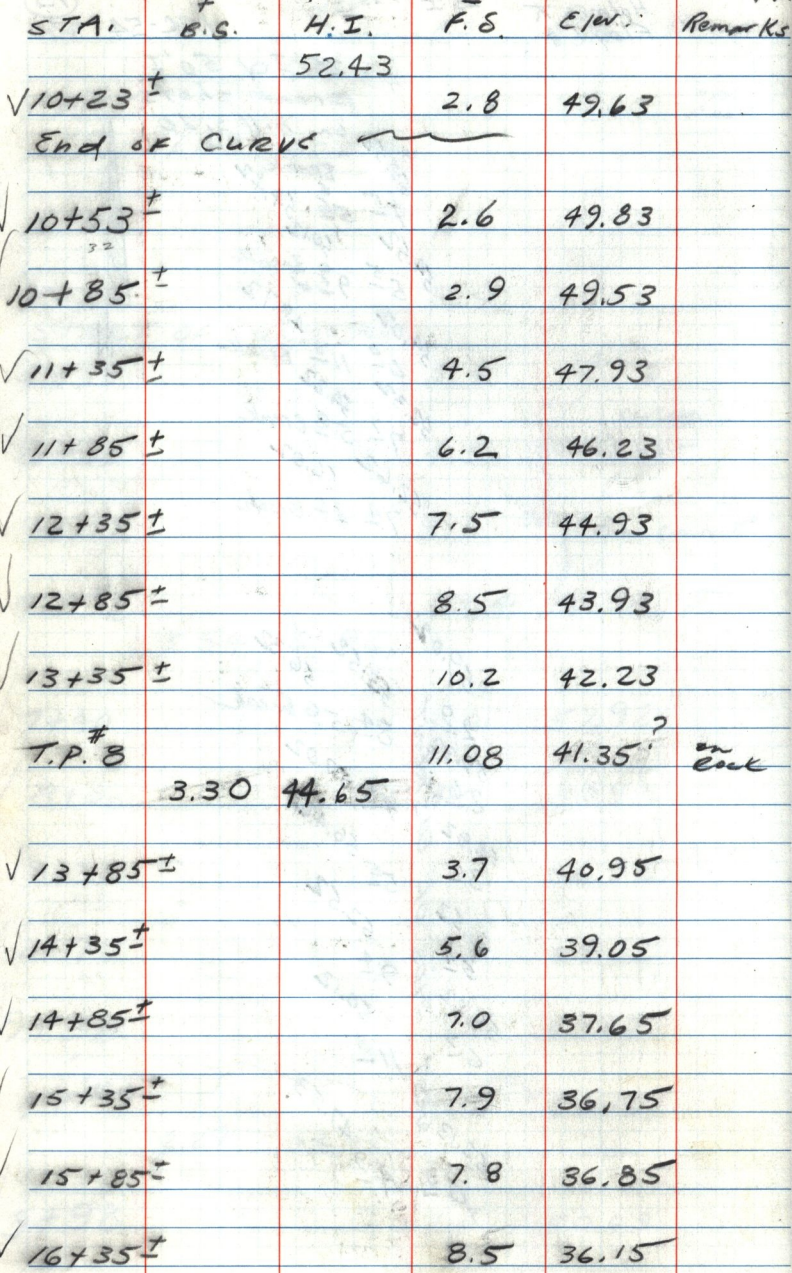 STA. + B.S. H.I. F.S. Elev. Remarks
52.43
✓ 10+23 ± 2.8 49.63
End of CURVE
10+53 ± 2.6 49.83
32
10+85 ± 2.9 49.53
✓ 11+35 ± 4.5 47.93
✓ 11+85 ± 6.2 46.23
✓ 12+35 ± 7.5 44.93
✓ 12+85 ± 8.5 43.93
✓ 13+35 ± 10.2 42.23
T.P. #8 11.08 41.35 ? on Rock
3.30 44.65
✓ 13+85 ± 3.7 40.95
✓ 14+35 ± 5.6 39.05
✓ 14+85 ± 7.0 37.65
✓ 15+35 ± 7.9 36.75
✓ 15+85 ± 7.8 36.85
✓ 16+35 ± 8.5 36.15